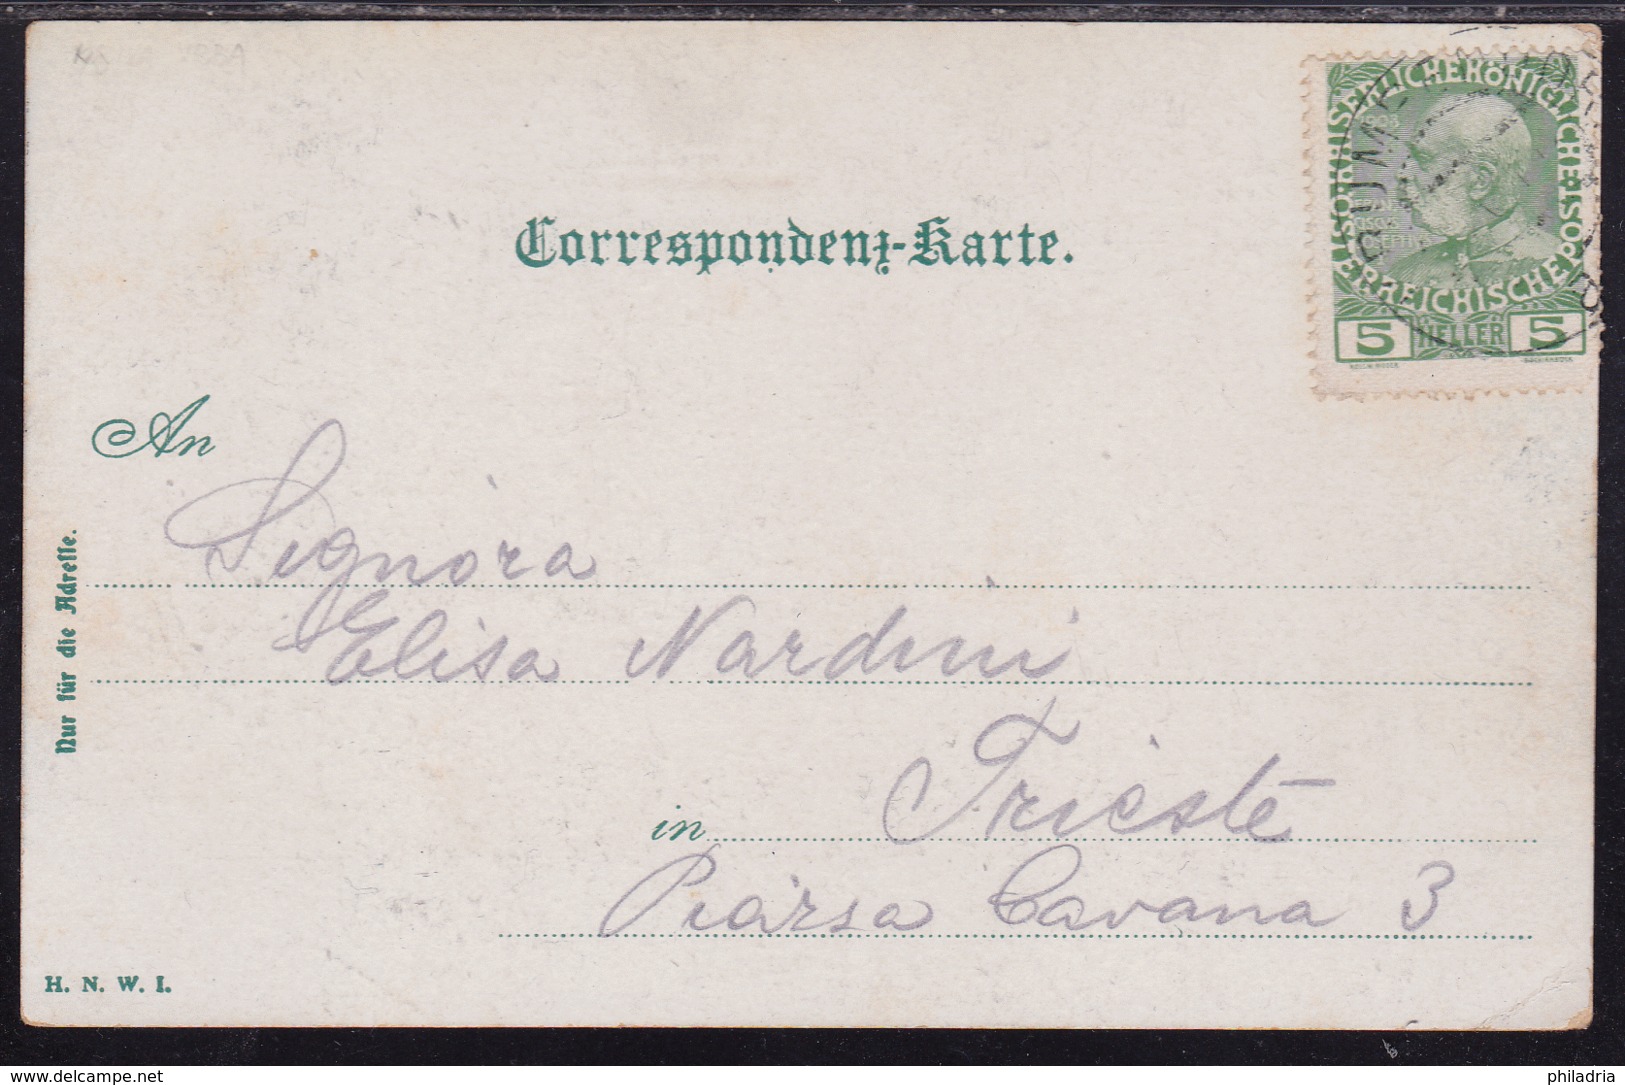 KAISERLICHE KÖNIGLICHE ÖSTERREICHISCHE POST
1908
5 HELLER 5
Correspondenz-Karte.
An
Signora
Elisa Nardini
in Trieste
Piazza Cavana 3
Nur für die Adresse.
H. N. W. I.
www.delcampe.net
philadria